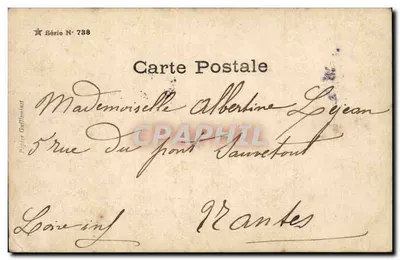 ★ Série N° 738
Carte Postale
Mademoiselle Albertine Lejean
5 rue du pont Sauvetout
Loire inf Nantes
CPHARTIC